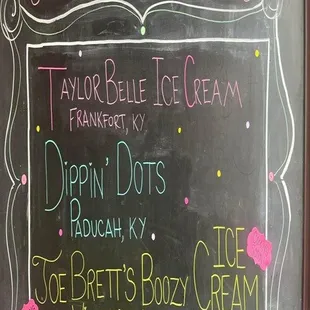 Taylor Belle Ice Cream
Frankfort, KY
Dippin' Dots
Paducah, KY
Joe Brett's Boozy Ice Cream